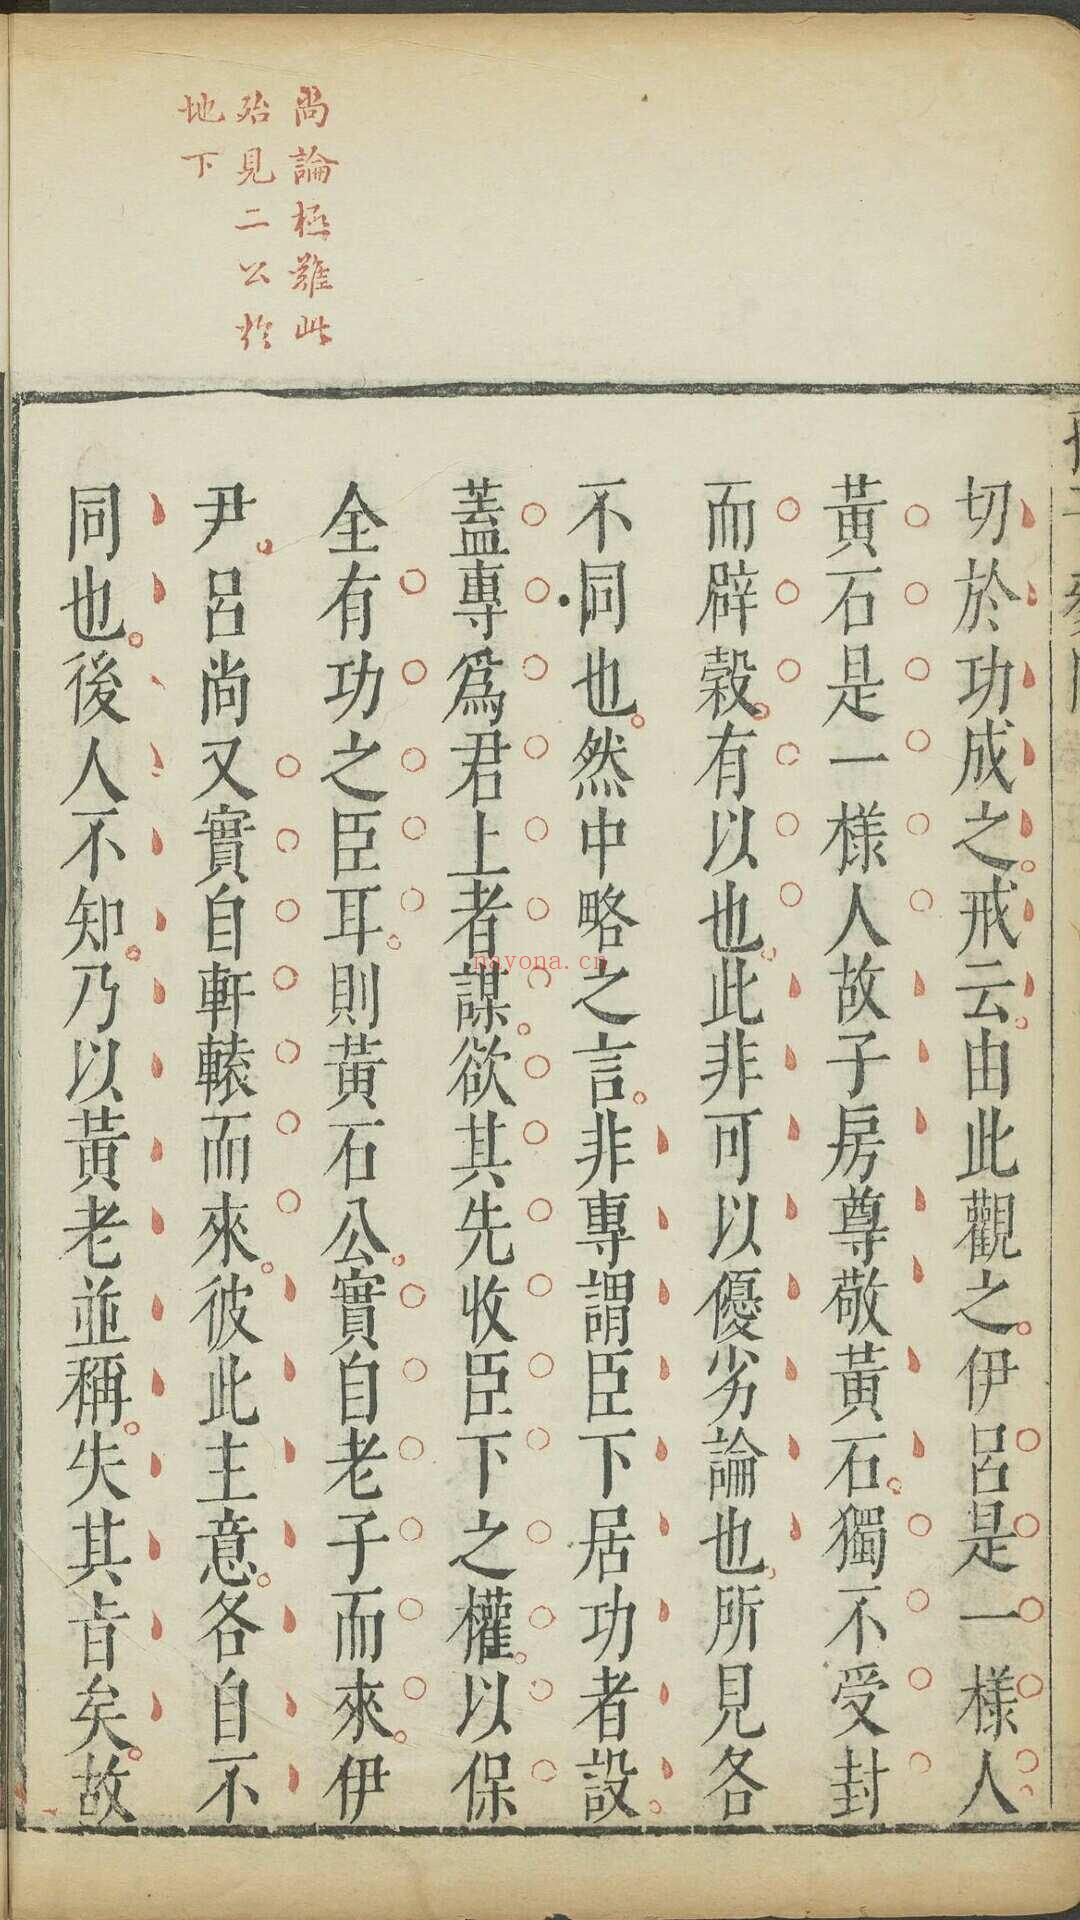 尚論極難此
殆見二公於
地下
切於功成之戒云由此觀之伊呂是一樣人
黃石是一樣人故子房尊敬黃石獨不受封
而辟穀有以也此非可以優劣論也所見各
不同也然中略之言非專謂臣下居功者設
蓋專爲君上者謀欲其先收臣下之權以保
全有功之臣耳則黃石公實自老子而來伊
尹呂尚又實自軒轅而來彼此主意各自不
同也後人不知乃以黃老並稱失其旨矣故
nayona.cn